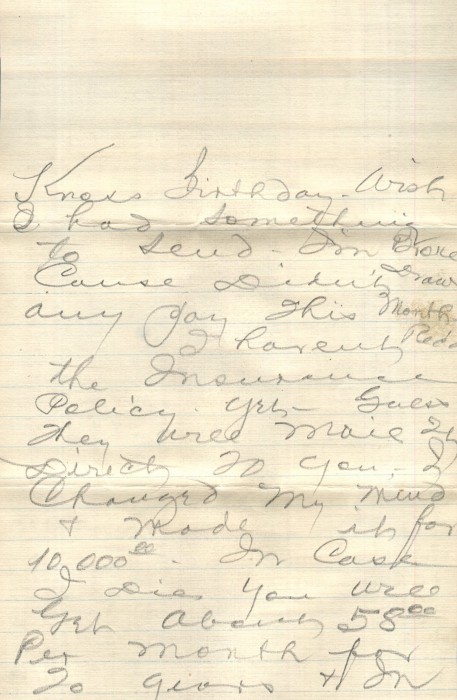 Knoxs Birthday. Wish
I had something
to send - I'm Broke
Cause Didn't Draw
any pay This Month
I havent Recd
the Insurance
Policy. Yet - Guess
They Will Mail It
Direct To you. I
Changed My Mind
& Made it for
10,000.00 - In Case
I Die You Will
Get About 58.00
Per Month for
20 Years & In